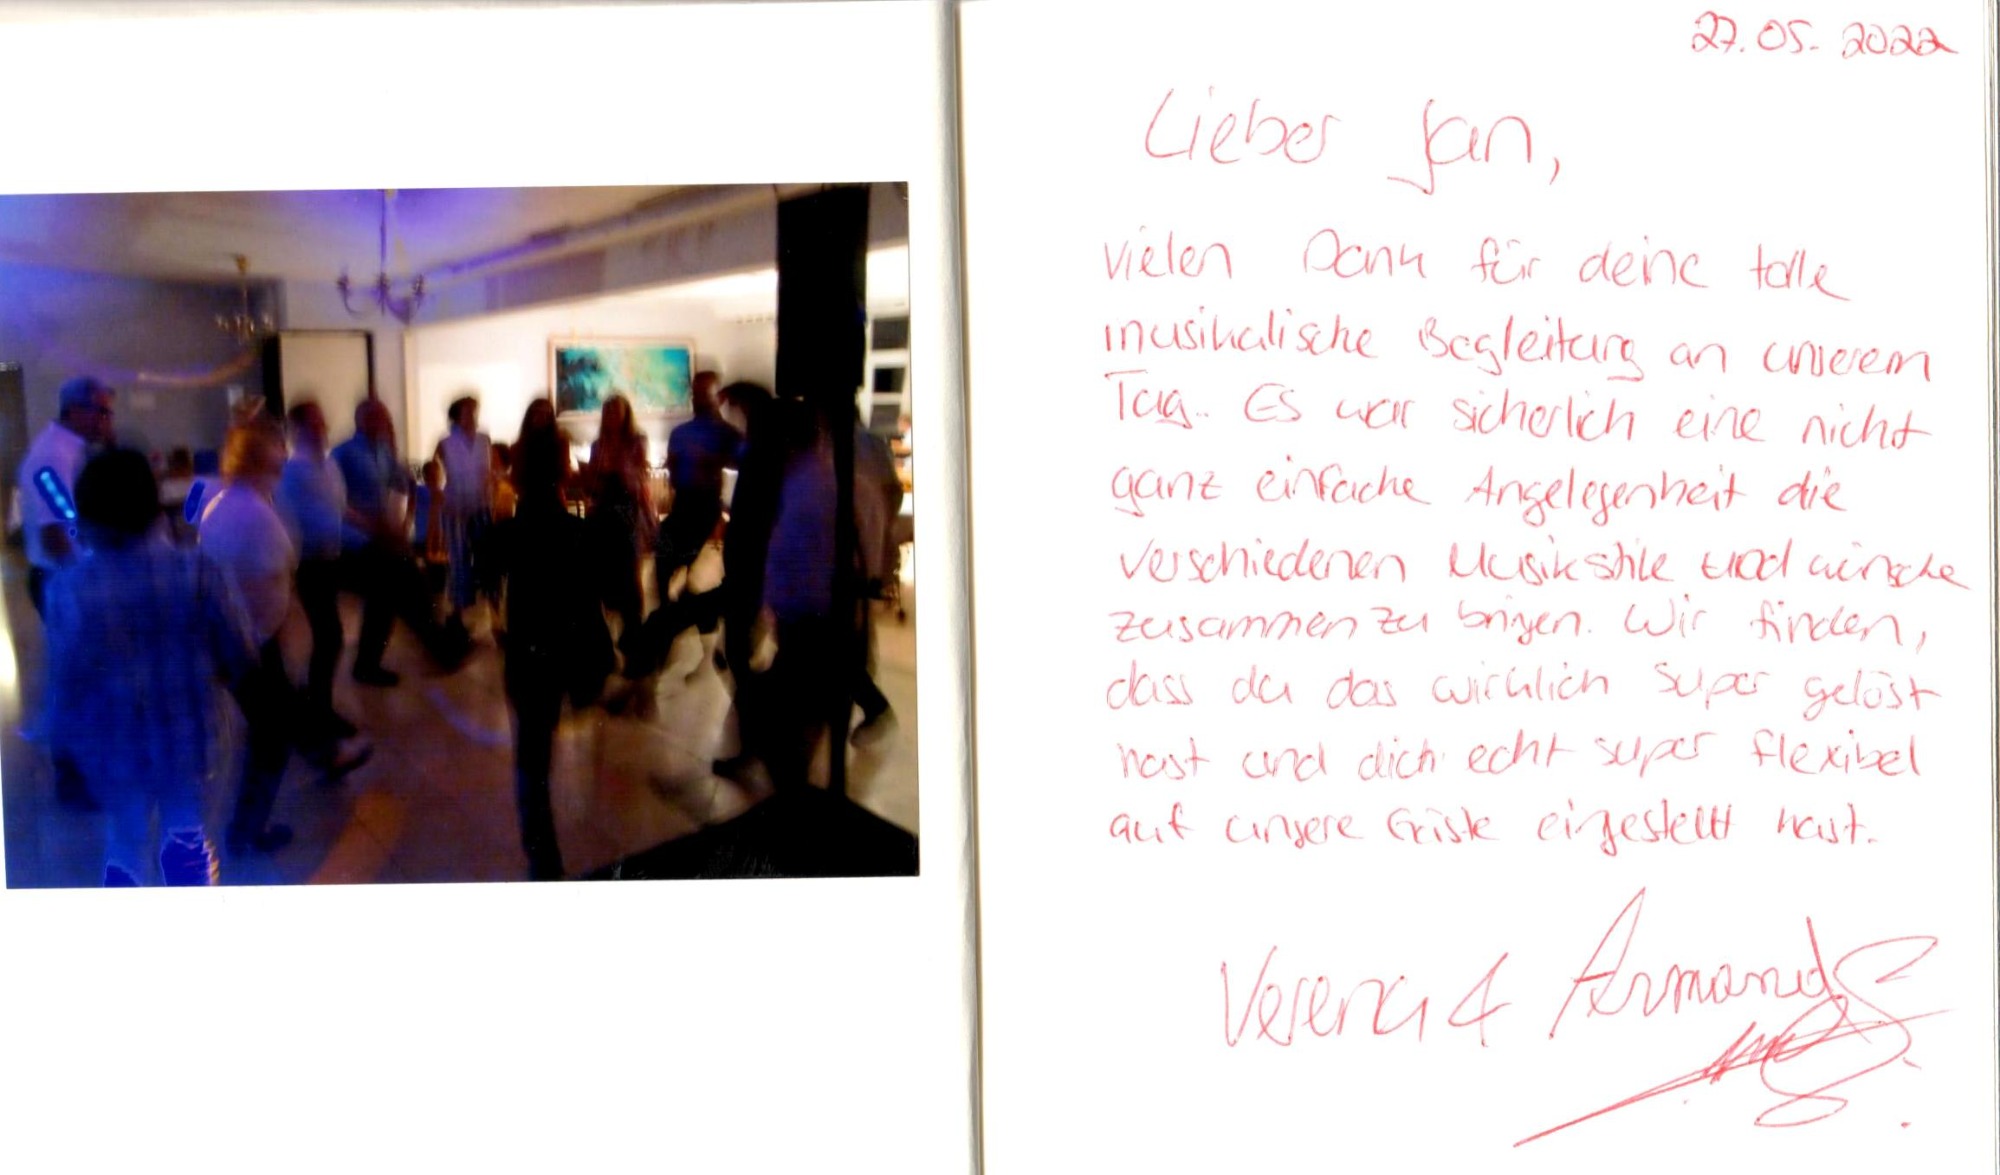 27.05.2022
Lieber Jan,
vielen Dank für deine tolle
musikalische Begleitung an unserem
Tag.. Es war sicherlich eine nicht
ganz einfache Angelegenheit die
verschiedenen Musikstile und wünsche
zusammen zu bringen. Wir finden,
dass du das wirklich super gelöst
hast und dich echt super flexibel
auf unsere Gäste eingestellt hast.
Verena & Armand